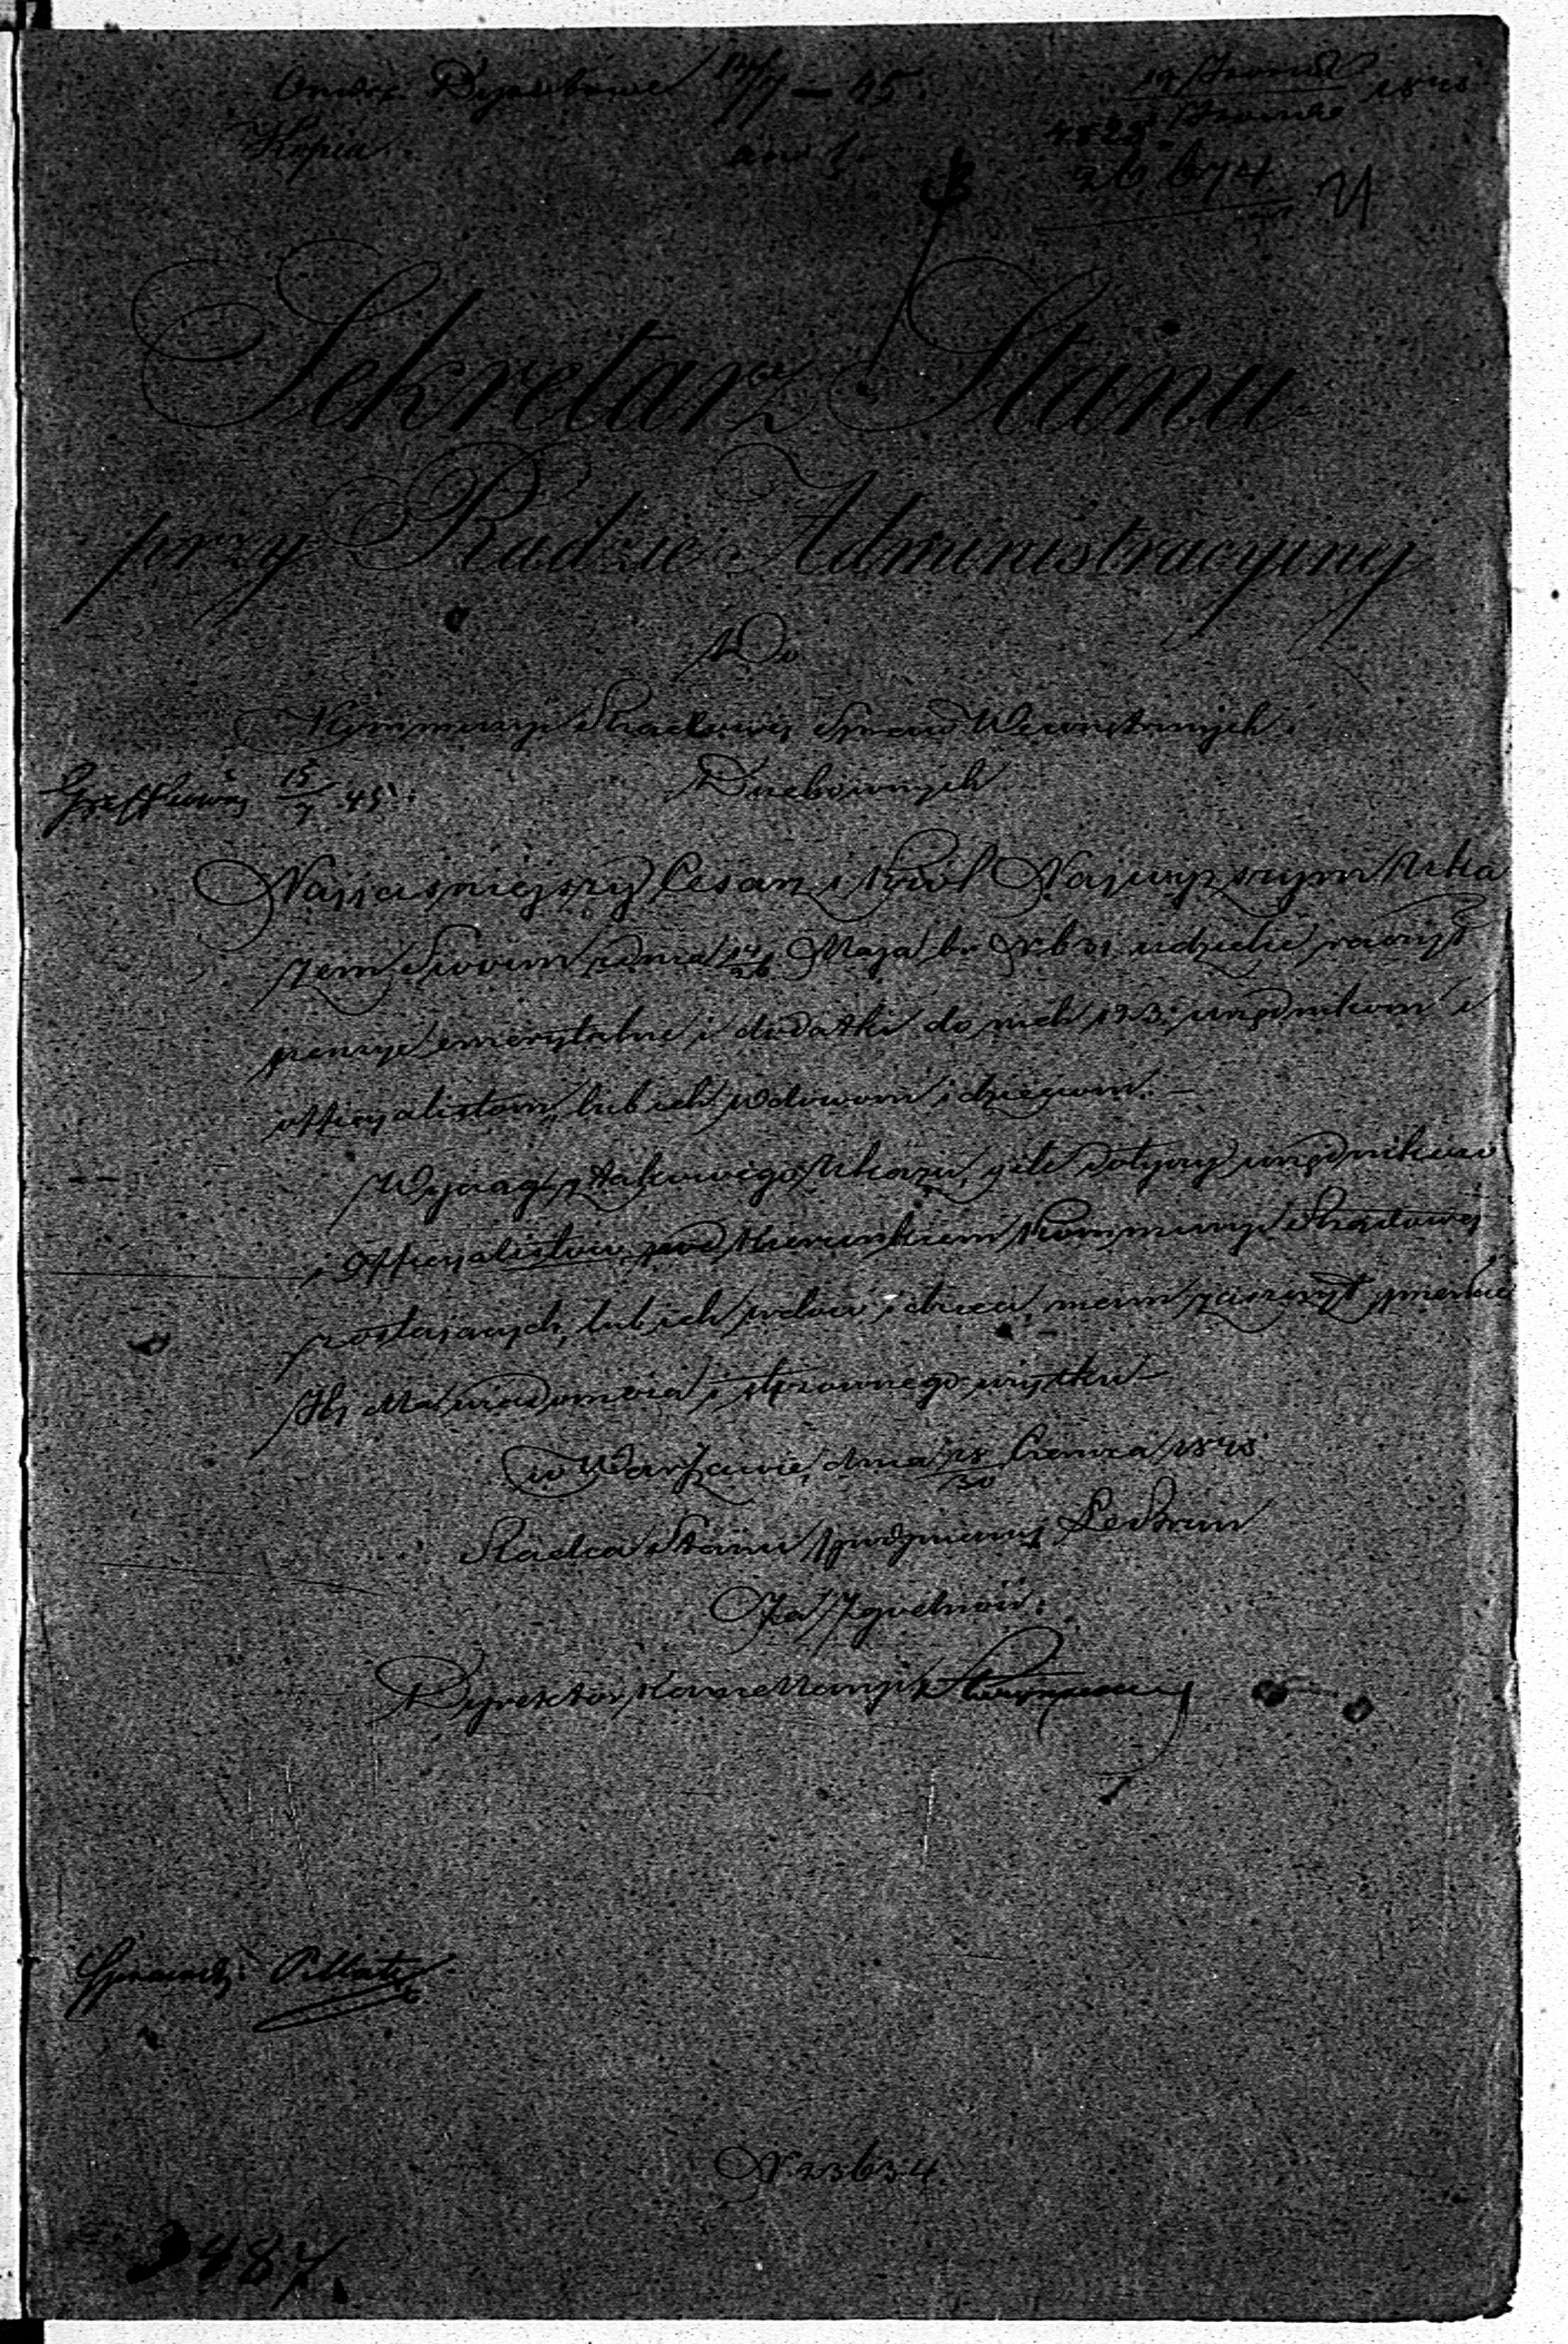 Kopia
26674
21
Sekretarz Stanu
przy Radzie Administracyjnej
Do
Kommissyi Rządowej Spraw Wewnętrznych i
Duchownych
15/7 45.
Najjaśniejszy Cesarz i Król Najwyższym Uka
zem Swoim z dnia 14/26 Maja b.r. udzielić raczył
pensye emerytalne i dodatki do nich 123 urzędnikom i
officyalistom, lub ich wdowom i dzieciom. —
Wyciąg z takowego Ukazu, ile dotyczy urzędników
i Officyalistów pod kierunkiem Kommissyi Rządowej
zostających, lub ich wdów i dzieci mam zaszczyt
Jej dla wiadomości i stosownego użytku
w Warszawie, dnia 18/30 Czerwca 1845
Radca Stanu (podpisany) Le Brun
Za Zgodność:
Dyrektor Kancellaryi
N 23634.
3487.